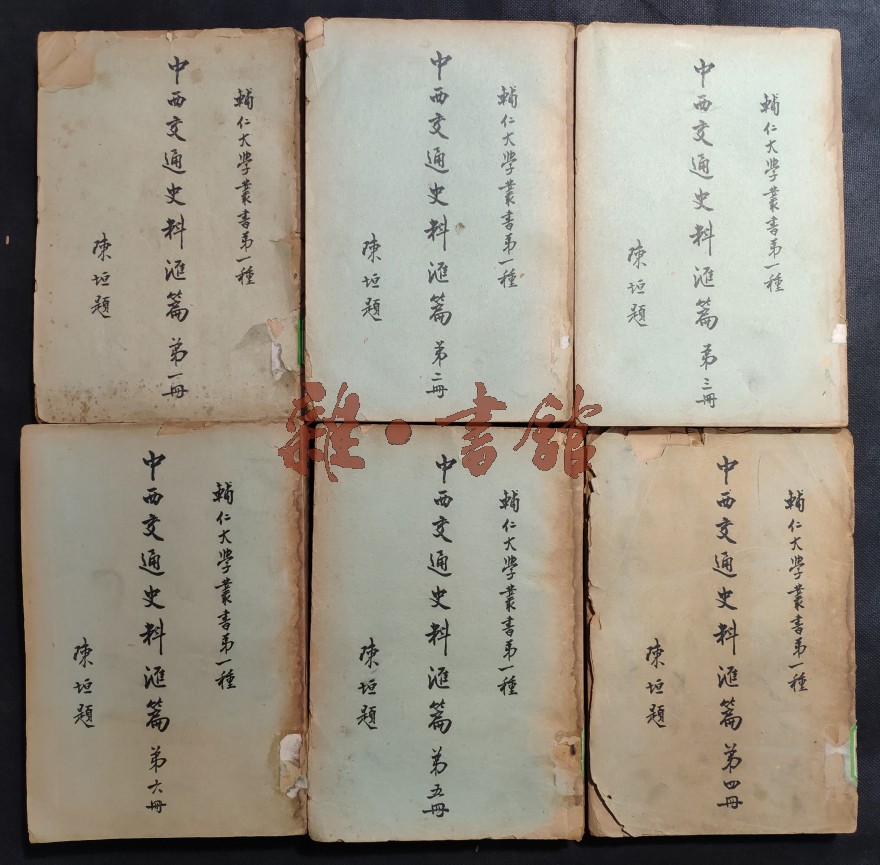 輔仁大學叢書第一種
中西交通史料滙篇 第一冊
陳垣題
輔仁大學叢書第一種
中西交通史料滙篇 第二冊
陳垣題
輔仁大學叢書第一種
中西交通史料滙篇 第三冊
陳垣題
輔仁大學叢書第一種
中西交通史料滙篇 第六冊
陳垣題
輔仁大學叢書第一種
中西交通史料滙篇 第五冊
陳垣題
輔仁大學叢書第一種
中西交通史料滙篇 第四冊
陳垣題
雜·書館